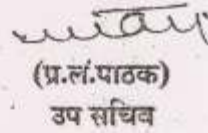 (प्र.लं.पाठक)
उप सचिव